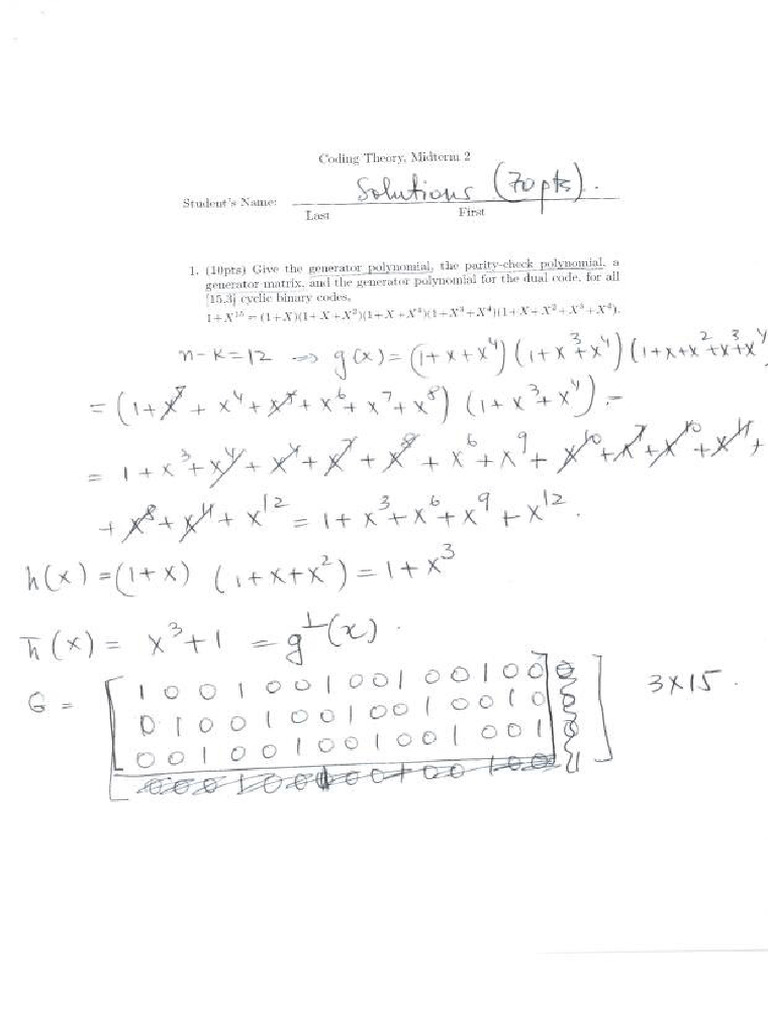 Coding Theory, Midterm 2
Solutions (70pts).
Student's Name:
Last First
1. (10pts) Give the generator polynomial, the parity-check polynomial, a
generator matrix, and the generator polynomial for the dual code, for all
[15,3] cyclic binary codes.
1+X^15 = (1+X)(1+X+X^2)(1+X+X^4)(1+X^3+X^4)(1+X+X^2+X^3+X^4).
n-k=12 ⇒ g(x)=(1+x+x^4)(1+x^3+x^4)(1+x+x^2+x^3+x^4
=(1+x^7+x^4+x^5+x^6+x^7+x^8)(1+x^3+x^4)=
=1+x^3+x^4+x^4+x^7+x^8+x^6+x^9+x^10+x^7+x^10+x^11+
+x^8+x^11+x^12=1+x^3+x^6+x^9+x^12.
h(x)=(1+x)(1+x+x^2)=1+x^3
h̄(x)= x^3+1 =g^⊥(x).
G = 1 0 0 1 0 0 1 0 0 1 0 0 1 0 0 3×15.
0 1 0 0 1 0 0 1 0 0 1 0 0 1 0
0 0 1 0 0 1 0 0 1 0 0 1 0 0 1